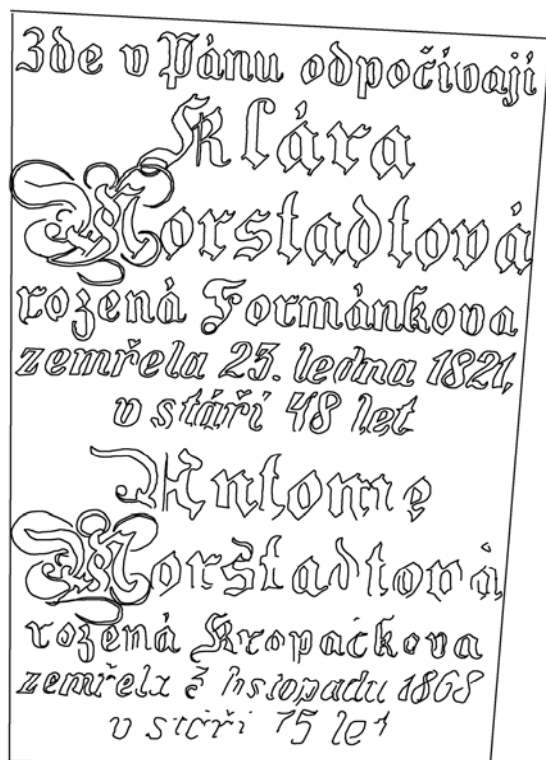 Zde v Pánu odpočívají
Klára
Morstadtová
rozená Formánkova
zemřela 23. ledna 1821,
v stáří 48 let
Antonie
Morstadtová
rozená Kropáčkova
zemřela 3 listopadu 1868
v stáří 75 let